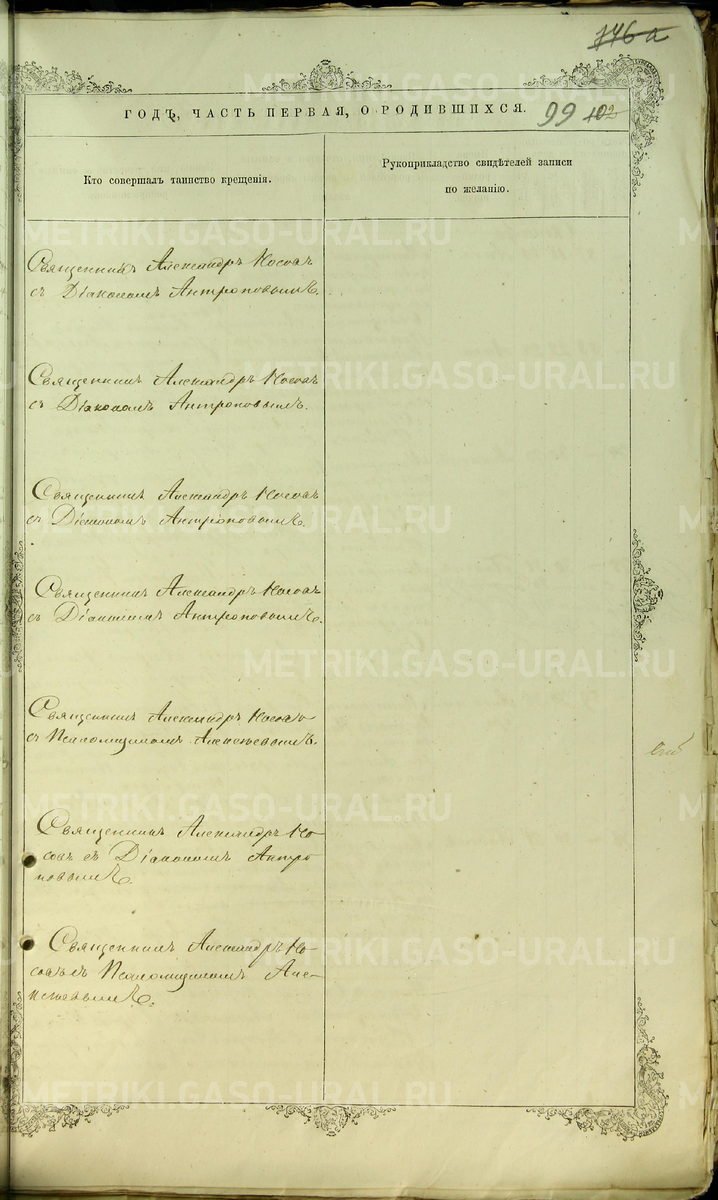 146-а
ГОДЪ, ЧАСТЬ ПЕРВАЯ, О РОДИВШИХСЯ.
99 102
Кто совершалъ таинство крещенія.
Рукоприкладство свидѣтелей записи
по желанію.
Священникъ Александръ Носовъ
съ Діакономъ Антроповымъ.
Священникъ Александръ Носовъ
съ Діакономъ Антроповымъ.
Священникъ Александръ Носовъ
съ Діакономъ Антроповымъ.
Священникъ Александръ Носовъ
съ Діакономъ Антроповымъ.
Священникъ Александръ Носовъ
съ Псаломщикомъ Алексѣевымъ.
Священникъ Александръ Но-
совъ съ Діакономъ Антро
повымъ.
Священникъ Александръ Но-
совъ съ Псаломщикомъ Але-
ксѣевымъ.
METRIKI.GASO-URAL.RU